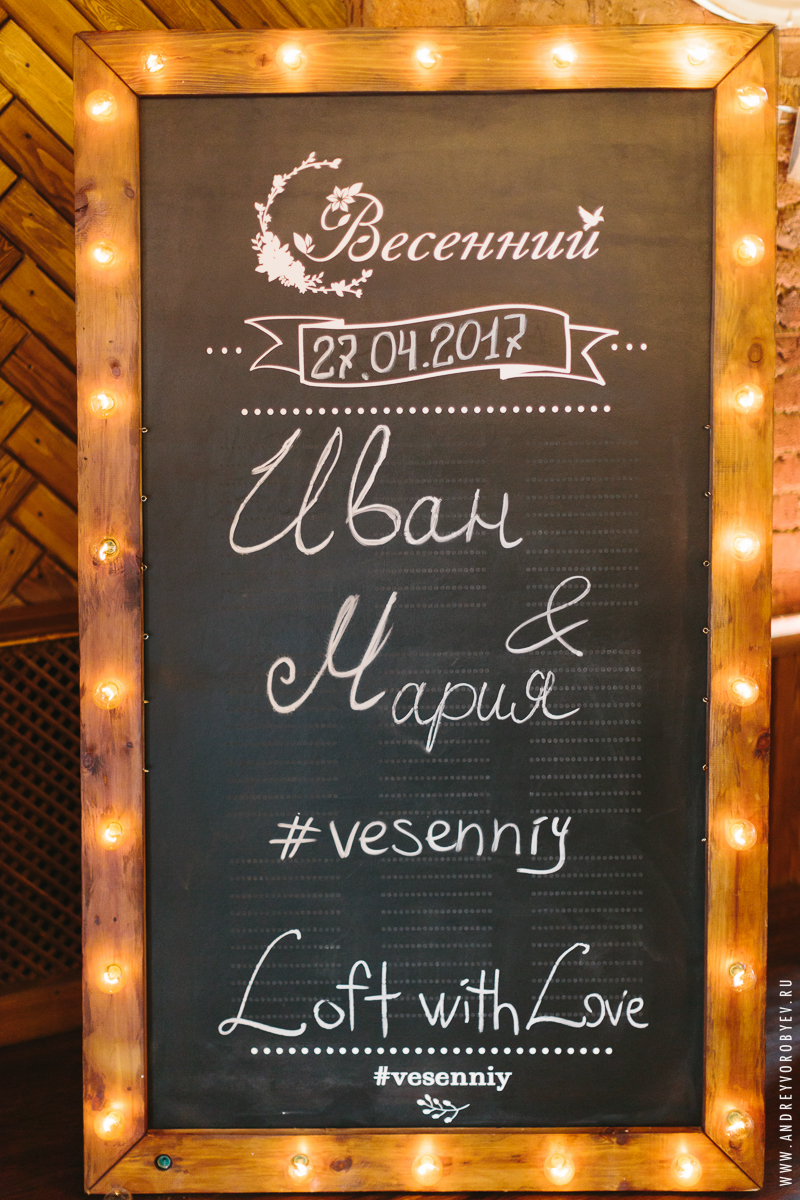 Весенний
27.04.2017
Иван
&
Мария
#vesenniy
Loft with Love
#vesenniy
WWW.ANDREYVOROBYEV.RU